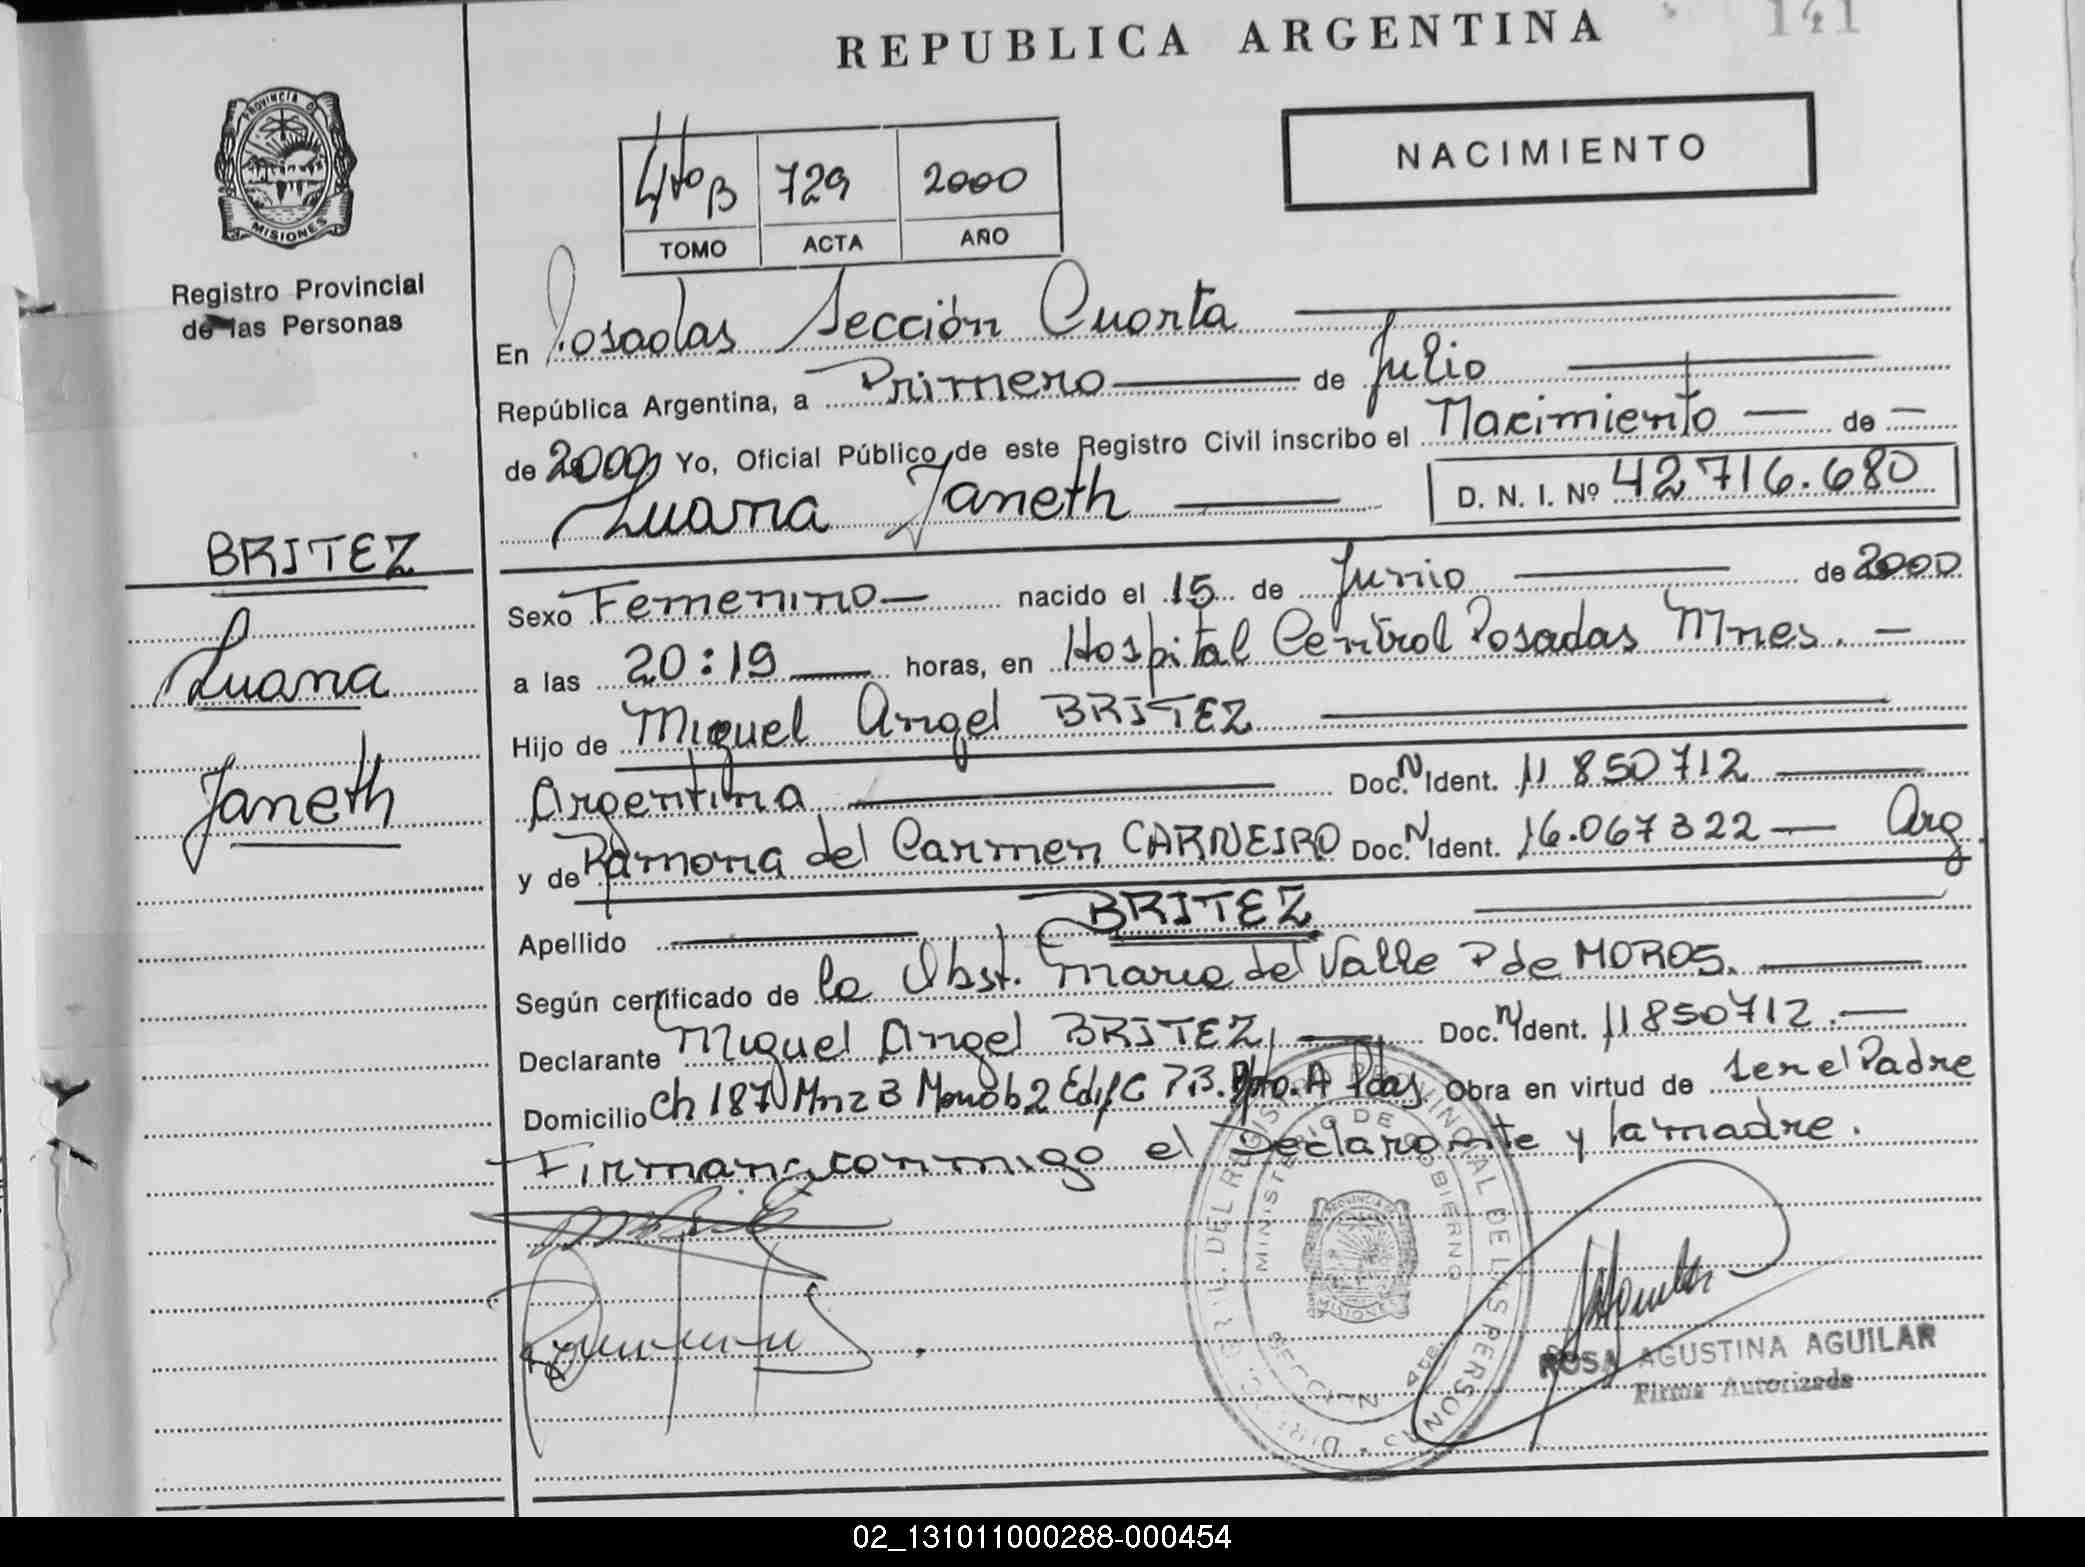 REPUBLICA ARGENTINA
141
PROVINCIA DE
MISIONES
Registro Provincial
de las Personas
4to B 729 2000
TOMO ACTA AÑO
NACIMIENTO
En Posadas Sección Cuarta
República Argentina, a Primero de Julio
de 2000 Yo, Oficial Público de este Registro Civil inscribo el Nacimiento de
Luana Janeth D. N. I. Nº 42716.680
BRITEZ
Luana
Janeth
Sexo Femenino nacido el 15 de Junio de 2000
a las 20:19 horas, en Hospital Central Posadas Mnes.
Hijo de Miguel Angel BRITEZ
Argentina Doc. N Ident. 11 850712
y de Ramona del Carmen CARNEIRO Doc. N Ident. 16.067322 Arg
Apellido BRITEZ
Según certificado de la Obst. Maria del Valle P de MOROS.
Declarante Miguel Angel BRITEZ Doc. N Ident. 11850712.
Domicilio Ch 187 Mnz B Monob 2 Edif C P.B. Dpto. A Pdas Obra en virtud de ser el Padre
Firman conmigo el Declarante y la madre.
ROSA AGUSTINA AGUILAR
Firma Autorizada
DEL REGISTRO PROVINCIAL DE LAS PERSONAS
MINISTERIO DE GOBIERNO
MISIONES
02_131011000288-000454